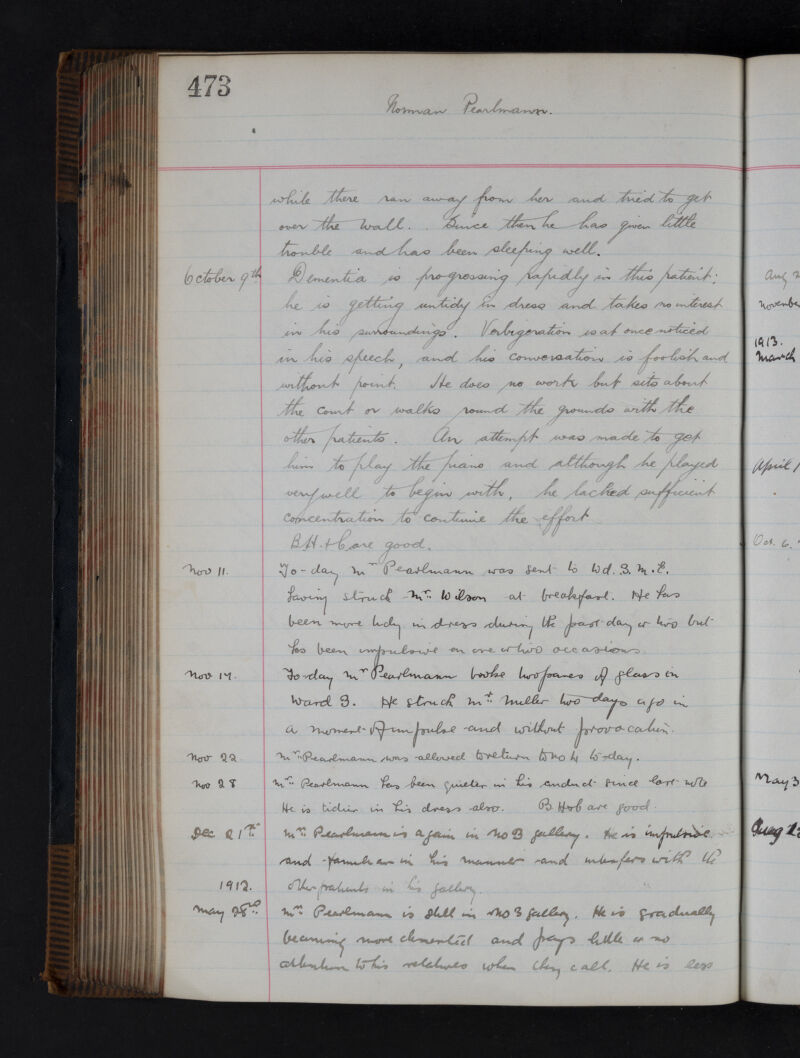 473
Norman Pearlmann.
while there ran away from her and tried to get
over the wall. . Since then he has given little
trouble and has been sleeping well.
October 9th Dementia is progressing rapidly in this patient;
he is getting untidy in dress and takes no interest
in his surroundings. Verbigeration is at once noticed
in his speech, and his conversation is foolish and
without point. He does no work but sits about
the court or walks round the grounds with the
other patients. An attempt was made to get
him to play the piano and although he played
very well to begin with, he lacked sufficient
concentration to continue the effort
B.H. & b are good.
Nov 11. To-day Mr Pearlmann was sent to Wd. 3. M.
having struck Mr Wilson at breakfast. He has
been more tidy in dress during the past day or two but
has been impulsive on one or two occasions.
Nov 17. To-day Mr Pearlmann broke two panes of glass in
Ward 3. He struck Mr Muller two days ago in
a moment of impulse and without provocation.
Nov 22 Mr Pearlmann was allowed to return to no 4 to-day.
Nov 28 Mr Pearlmann has been quieter in his conduct since last note
He is tidier in his dress also. B H & b are good.
Dec 21st Mr Pearlmann is again in No 3 gallery. He is impulsive
and familiar in his manner and interferes with the
1912. other patients in his gallery.
May 28th Mr Pearlmann is still in No 3 gallery. He is gradually
becoming more demented and pays little or no
attention to his relatives when they call. He is less
Aug
November
1913.
March
April 1
Oct. 6.
May 3
Aug